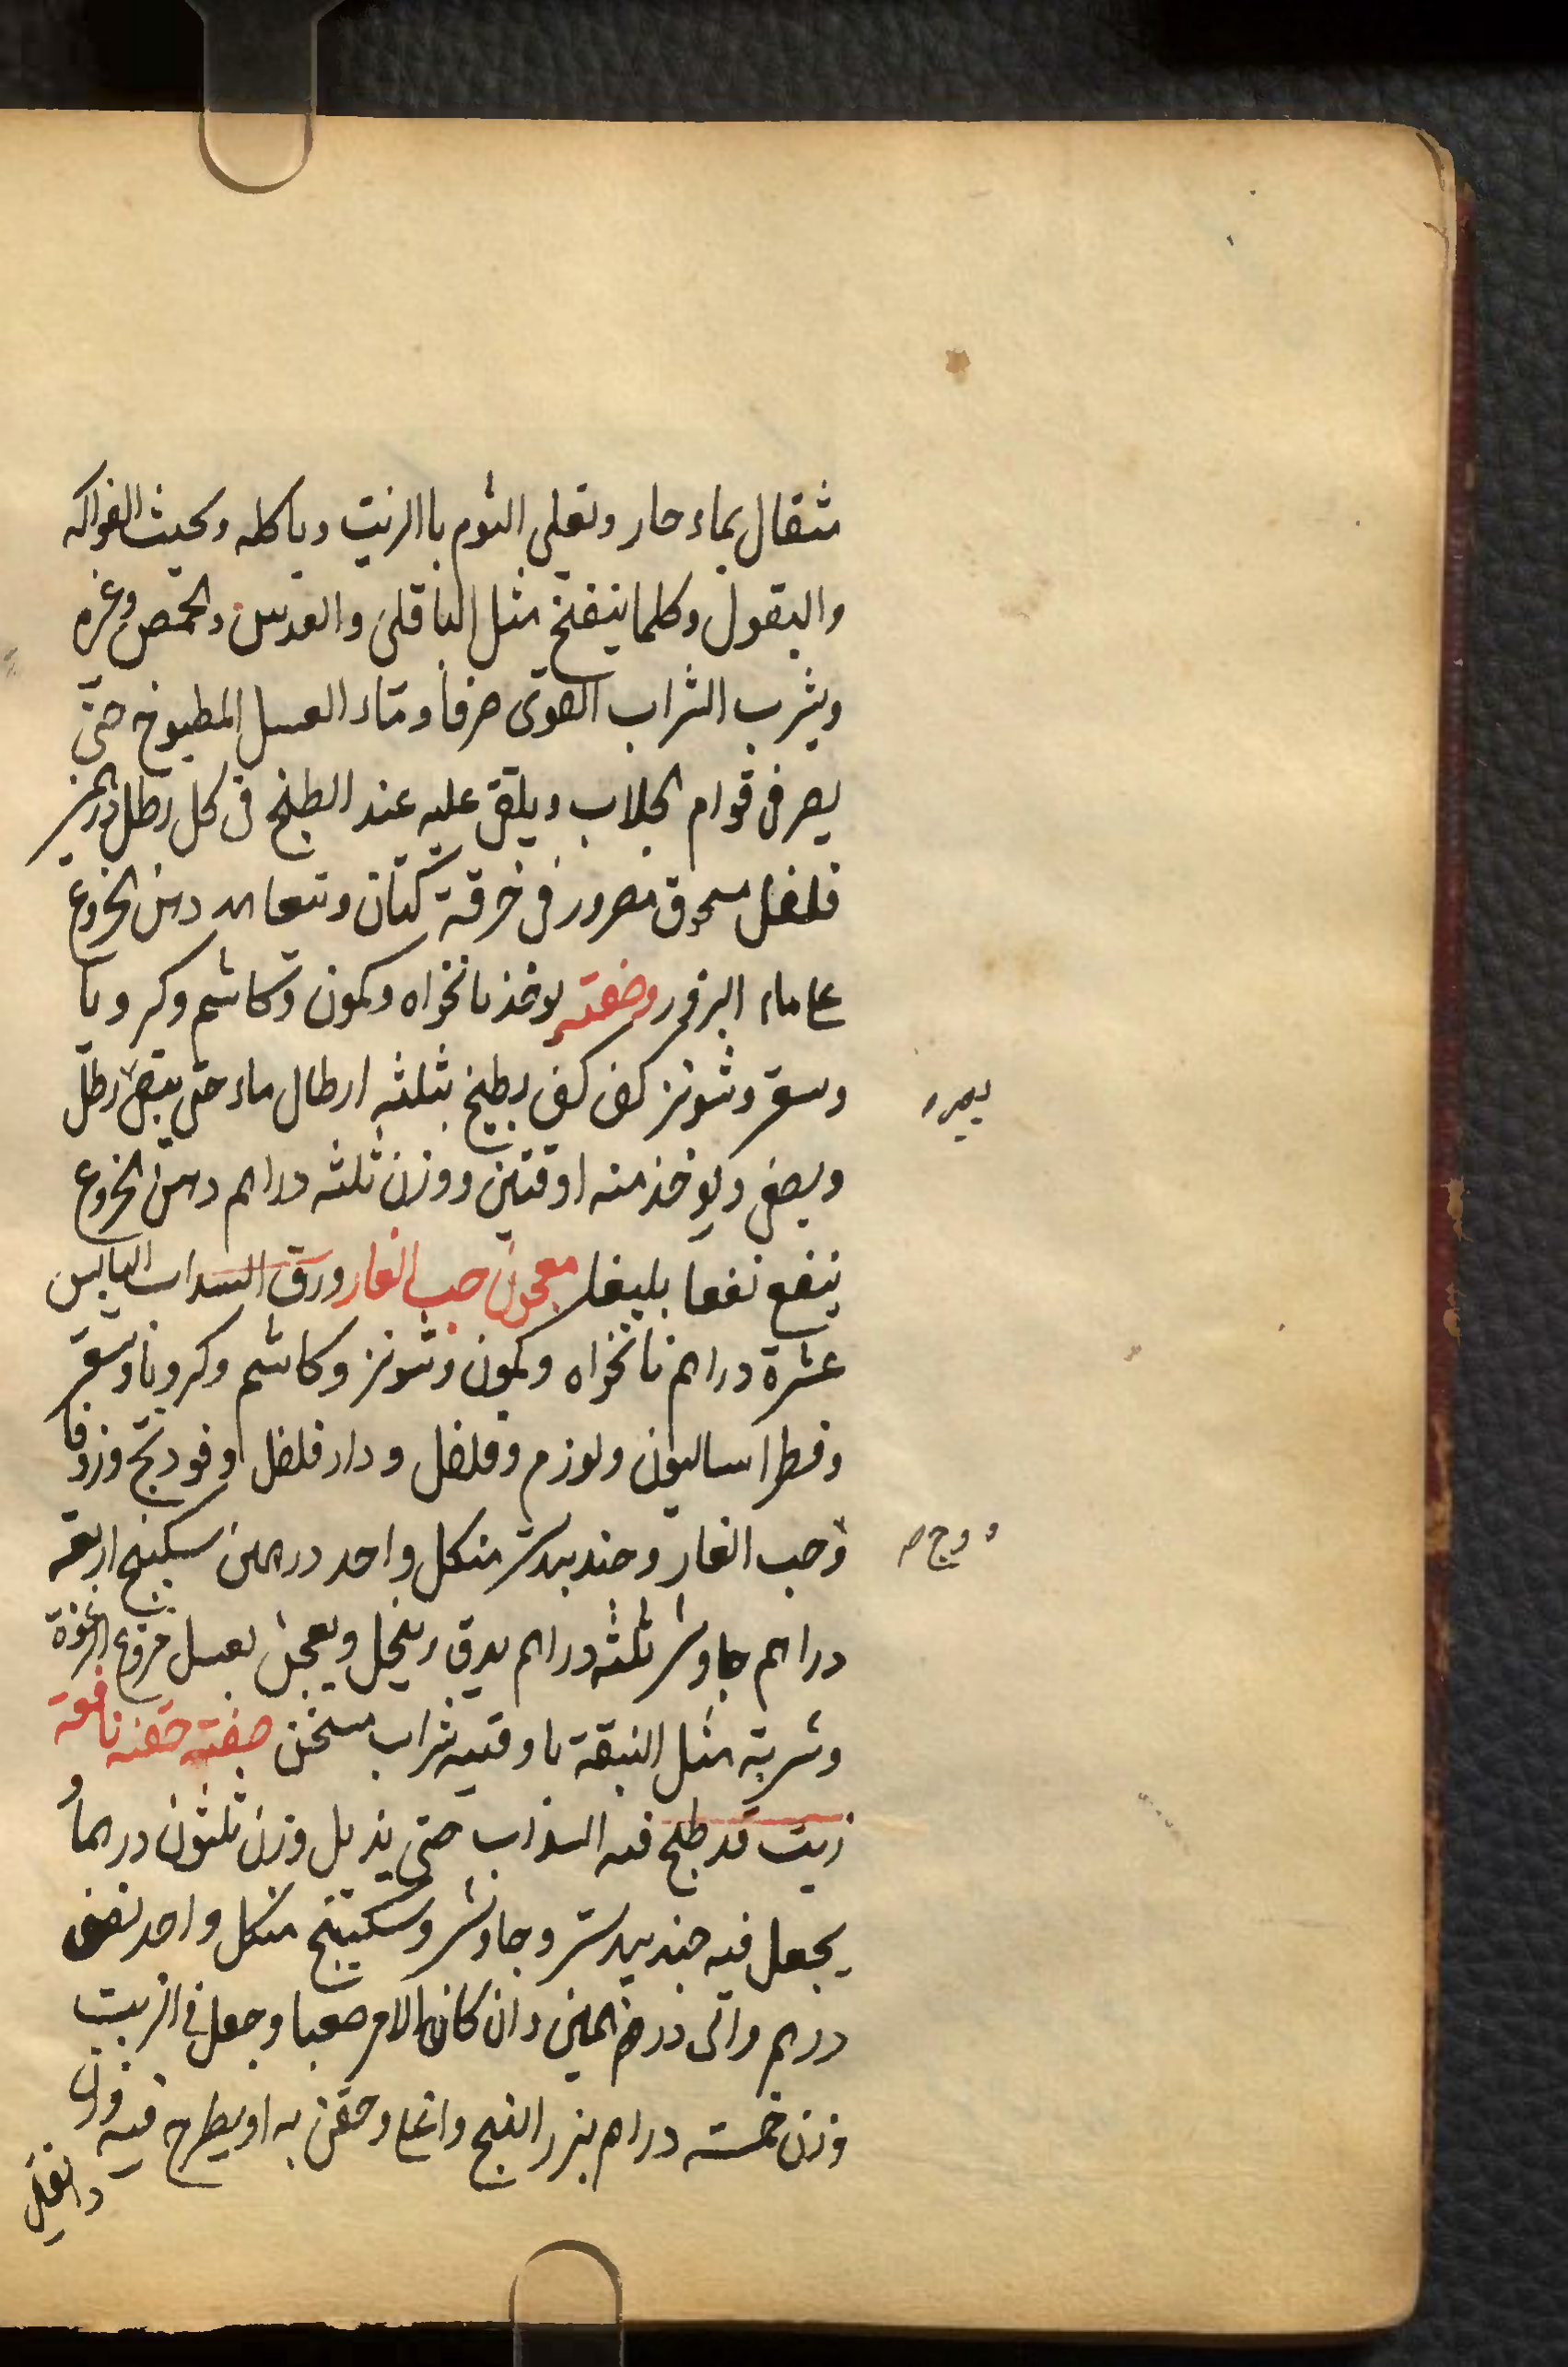 مثقال بماء حار وتقلى الثوم باالزيت وياكله ويجتنب الفواكه
والبقول وكلما ينفخ مثل الباقلى والعدس والحمص وغيره
ويشرب الشراب القوى صرفا وماء العسل المطبوخ حتى
يصير فى قوام الجلاب ويلقى عليه عند الطبخ فى كل رطل درهمين
فلفل مسحوق مصرور فى خرقة كتان وتتعاهد دهن الخروع
على ماء البزور وصفته يوخذ نانخواه وكمون وكاشم وكرويا
وسعتر وشونيز كف كف يطبخ بثلثه ارطال ماء حتى يبقى رطل
ويصفى ويوخذ منه اوقتين ووزن ثلثه دراهم دهن الخروع
ينفع نفعا بليغا معجون حب الغار ورق السداب اليابس
عشرة دراهم نانخواه وكمون وشونيز وكاشم وكرويا وسعتر
وفطراساليون ولوزمر وفلفل ودارفلفل وفودنج وزوفا
وحب الغار وجندبيدستر من كل واحد درهمين سكبينج اربعة
دراهم جاوشير ثلثه دراهم يدق وينخل ويعجن بعسل منزوع الرغوة
وشربته مثل النبقة باوقتيه شراب مسخن صفته حقنه نافعة
زيت قد طبخ فيه السذاب حتى يذبل وزن ثلثون درهما و
يجعل فيه جندبيدستر وجاوشير وسكبينج من كل واحد نصف
درهم والى درهمين وان كان الامر صعبا وجعل فى الزيت
وزن خمسه دراهم بزر البنج واغلى وحقن به او يطرح فيه وزن
دانقين